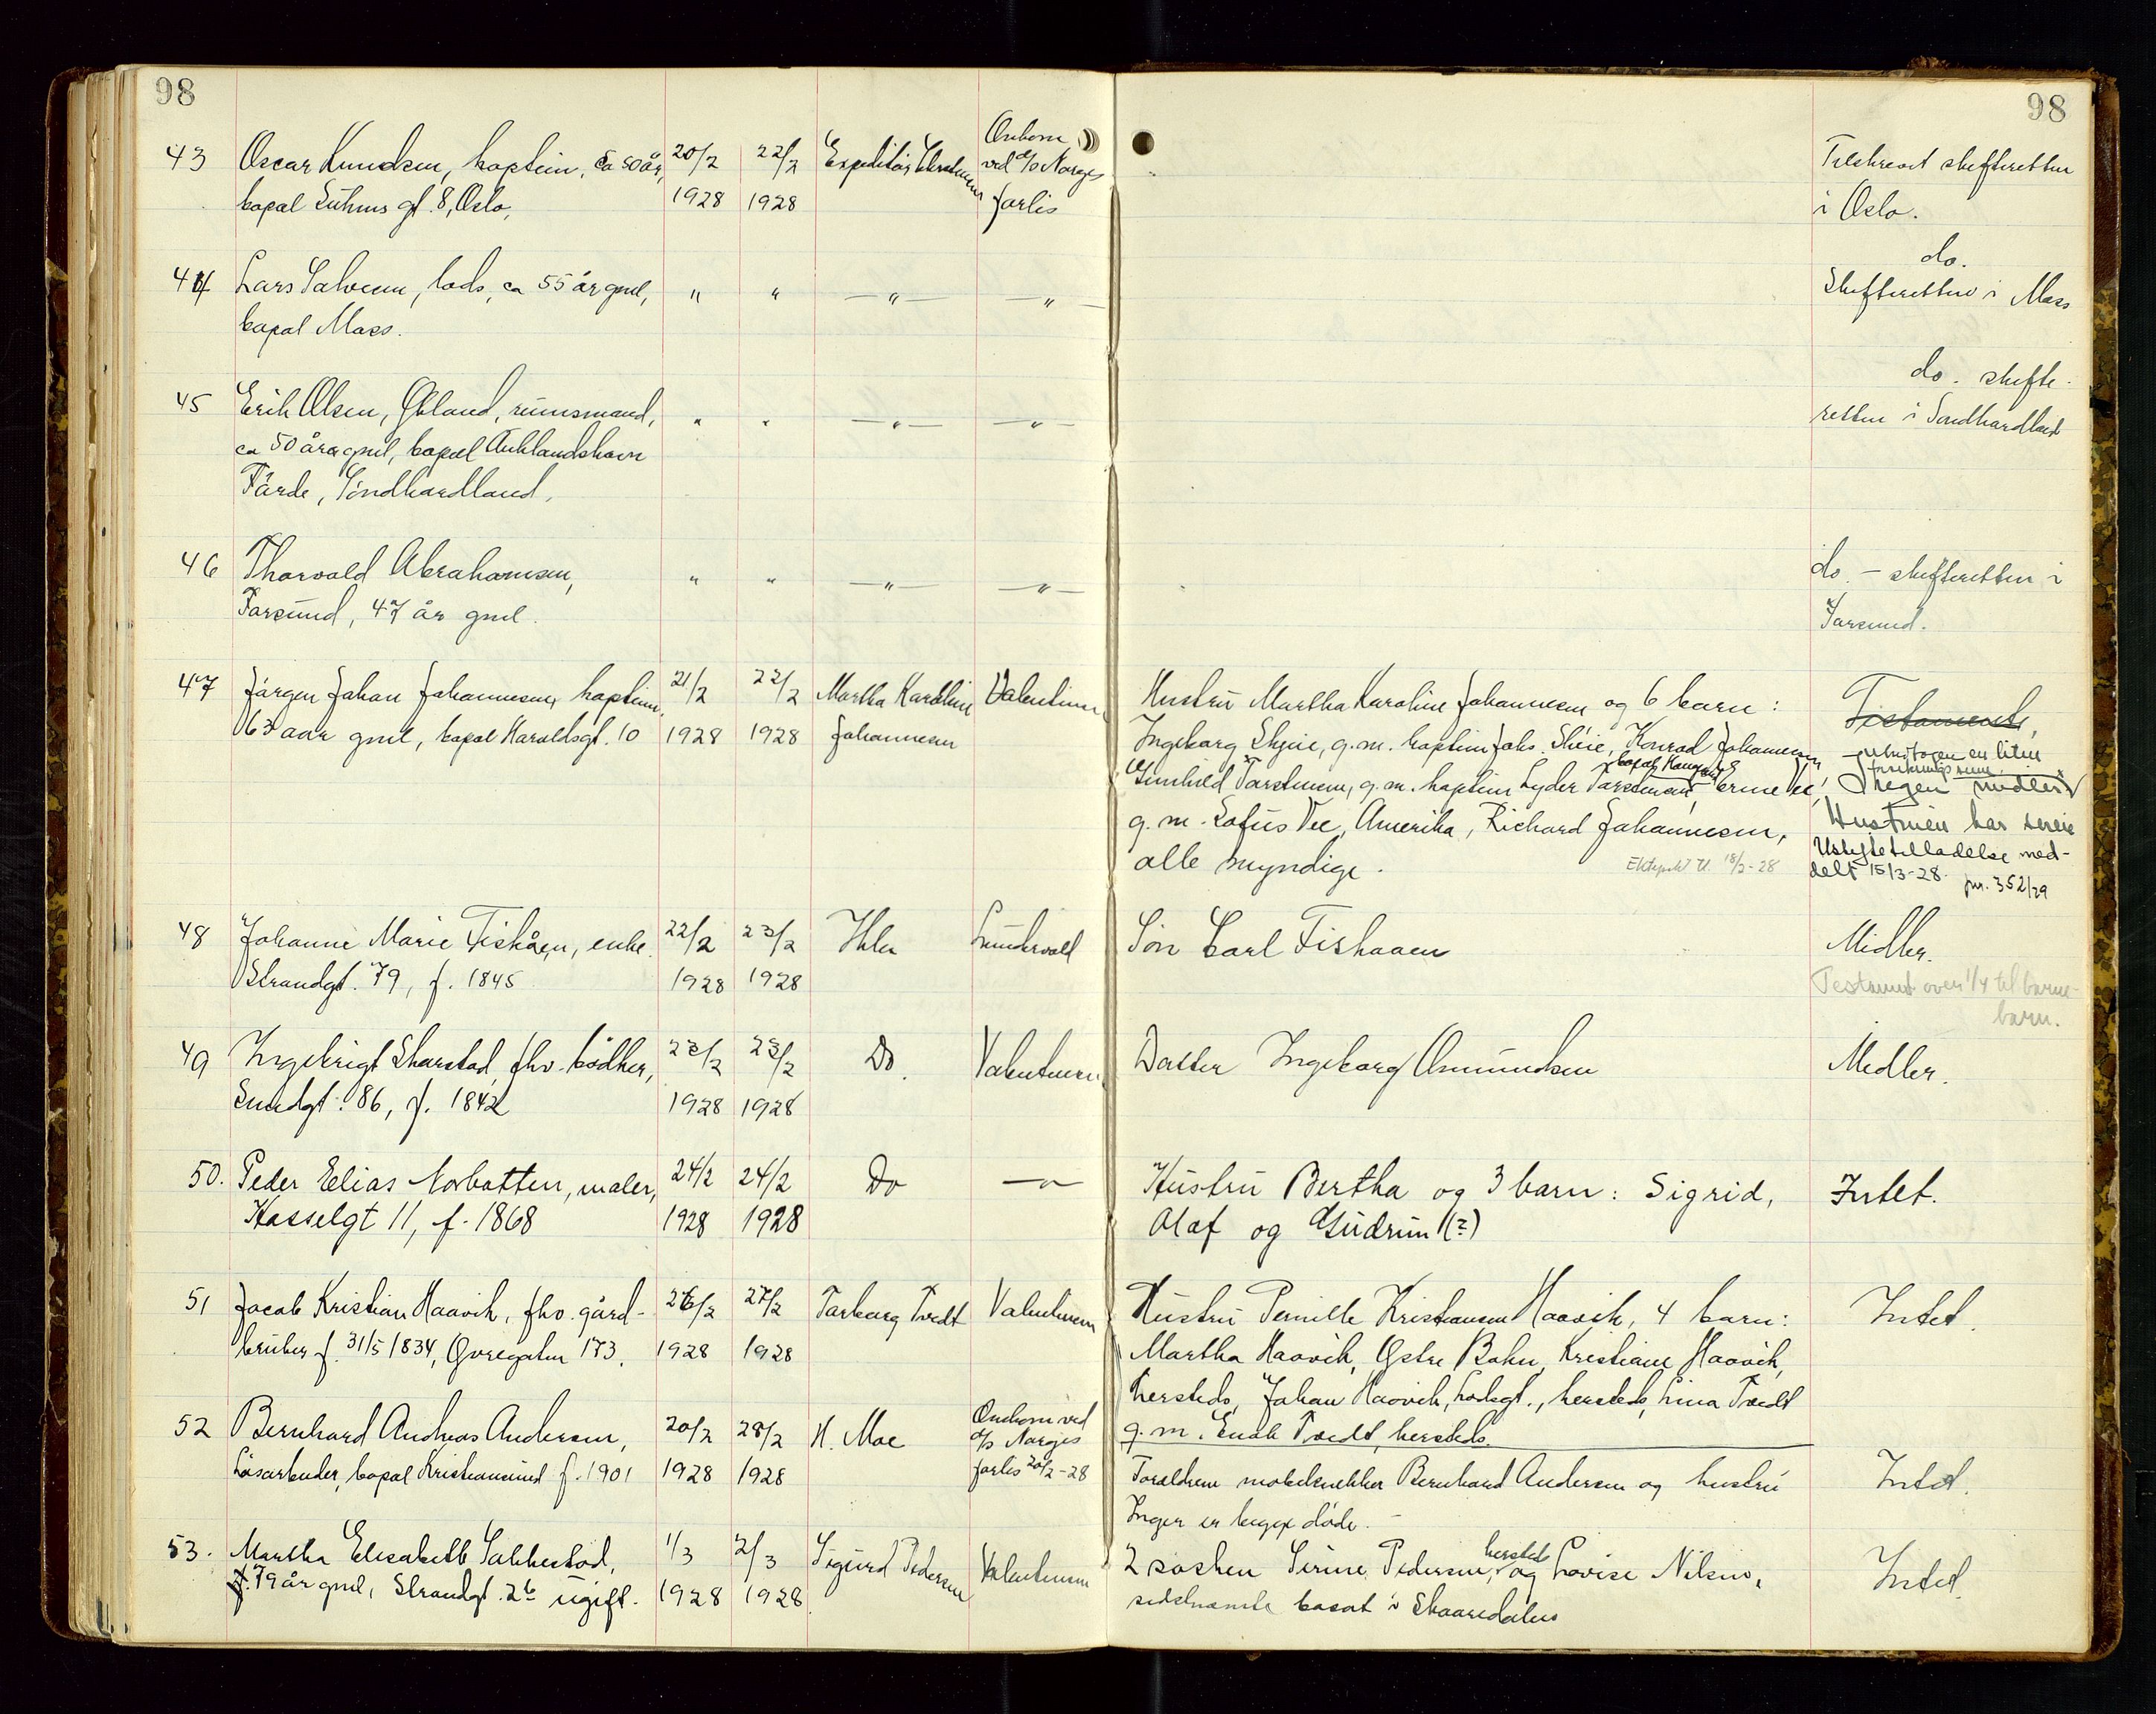 98
98
43 Oscar Knudsen, kaptein, ca 50 år, 20/2 22/2 Expeditør Omkom
bopæl Suhms gt. 8, Oslo, 1928 1928 ved d/s Norges
forlis
Tilskrevet skifteretten
i Oslo.
44 Lars Salvesen, lods, ca 55 år gml, " " —"— —"—
bopæl Moss.
do.
Skifteretten i Moss
45 Erik Olsen, Økland, rumsmand, " " —"— —"—
ca 50 år gml, bopæl Auklandshavn
Førde, Søndhordland.
do. skifte-
retten i Søndhordland
46 Thorvald Abrahamsen, " " —"— —"—
Farsund, 47 år gml.
do. — skifteretten i
Farsund.
47 Jørgen Johan Johannesen, kaptein, 21/2 22/2 Martha Karoline Valentinsen
63 aar gml, bopæl Haraldsgt. 10 1928 1928 Johannesen
Hustru Martha Karoline Johannesen og 6 barn:
Ingeborg Skeie, g.m. kaptein Johs. Skeie, Konrad Johannesen
bopæl Haugesund
Gunhild Torstensen, g.m. kaptein Lyder Torstensen, Erme Vee,
g.m. Sofus Vee, Amerika, Richard Johannesen,
alle myndige.
Ektepakt tl. 18/2-28
Testamente,
undtagen en liten
forsikringssum
Ingen midler
Hustruen har
Uskiftetilladelse med-
delt 15/3-28. jnr. 352/29
48 Johanne Marie Fiskåen, enke. 22/2 23/2 Ihlen Sundervold
Strandgt. 79, f. 1845 1928 1928
Søn Carl Fiskaaen
Midler.
Testament over 1/4 til barne-
barn.
49 Ingebrigt Skarstad, fhv. bødker, 23/2 23/2 Do. Valentinsen
Sundgt. 86, f. 1842 1928 1928
Datter Ingeborg Asmundsen
Midler.
50. Peder Elias Norbotten, maler, 24/2 24/2 Do —"—
Hasselgt 11, f. 1868 1928 1928
Hustru Bertha og 3 barn: Sigrid,
Olaf og Gudrun (?)
Intet.
51 Jacob Kristian Haavik, fhv. gård- 26/2 27/2 Torborg Tvedt Valentinsen
bruker f. 31/5 1834, Øvregaten 173. 1928 1928
Hustru Pernille Kristiansen Haavik, 4 barn:
Martha Haavik, Østre Bokn, Kristiane Haavik,
hersteds, Johan Haavik, Lodsgt., hersteds, Lina Tvedt
g.m. Enok Tvedt, hersteds.
Intet.
52 Bernhard Andreas Andersen, 20/2 28/2 H. Moe Omkom ved
Løsarbeider, bopæl Kristiansund f. 1901 1928 1928 d/s Norges
forlis 20/2-28
Forældrene møbelsnekker Bernhard Andersen og hustru
Inger er begge døde. —
Intet.
53. Martha Elisabeth Sakkestad, 1/3 2/3 Sigurd Pedersen Valentinsen
79 år gml, Strandgt. 26 ugift. 1928 1928
hersteds
2 søsken Serine Pedersen, og Lovise Nilsen,
sidstnævnte bosat i Skaaredalen
Intet.